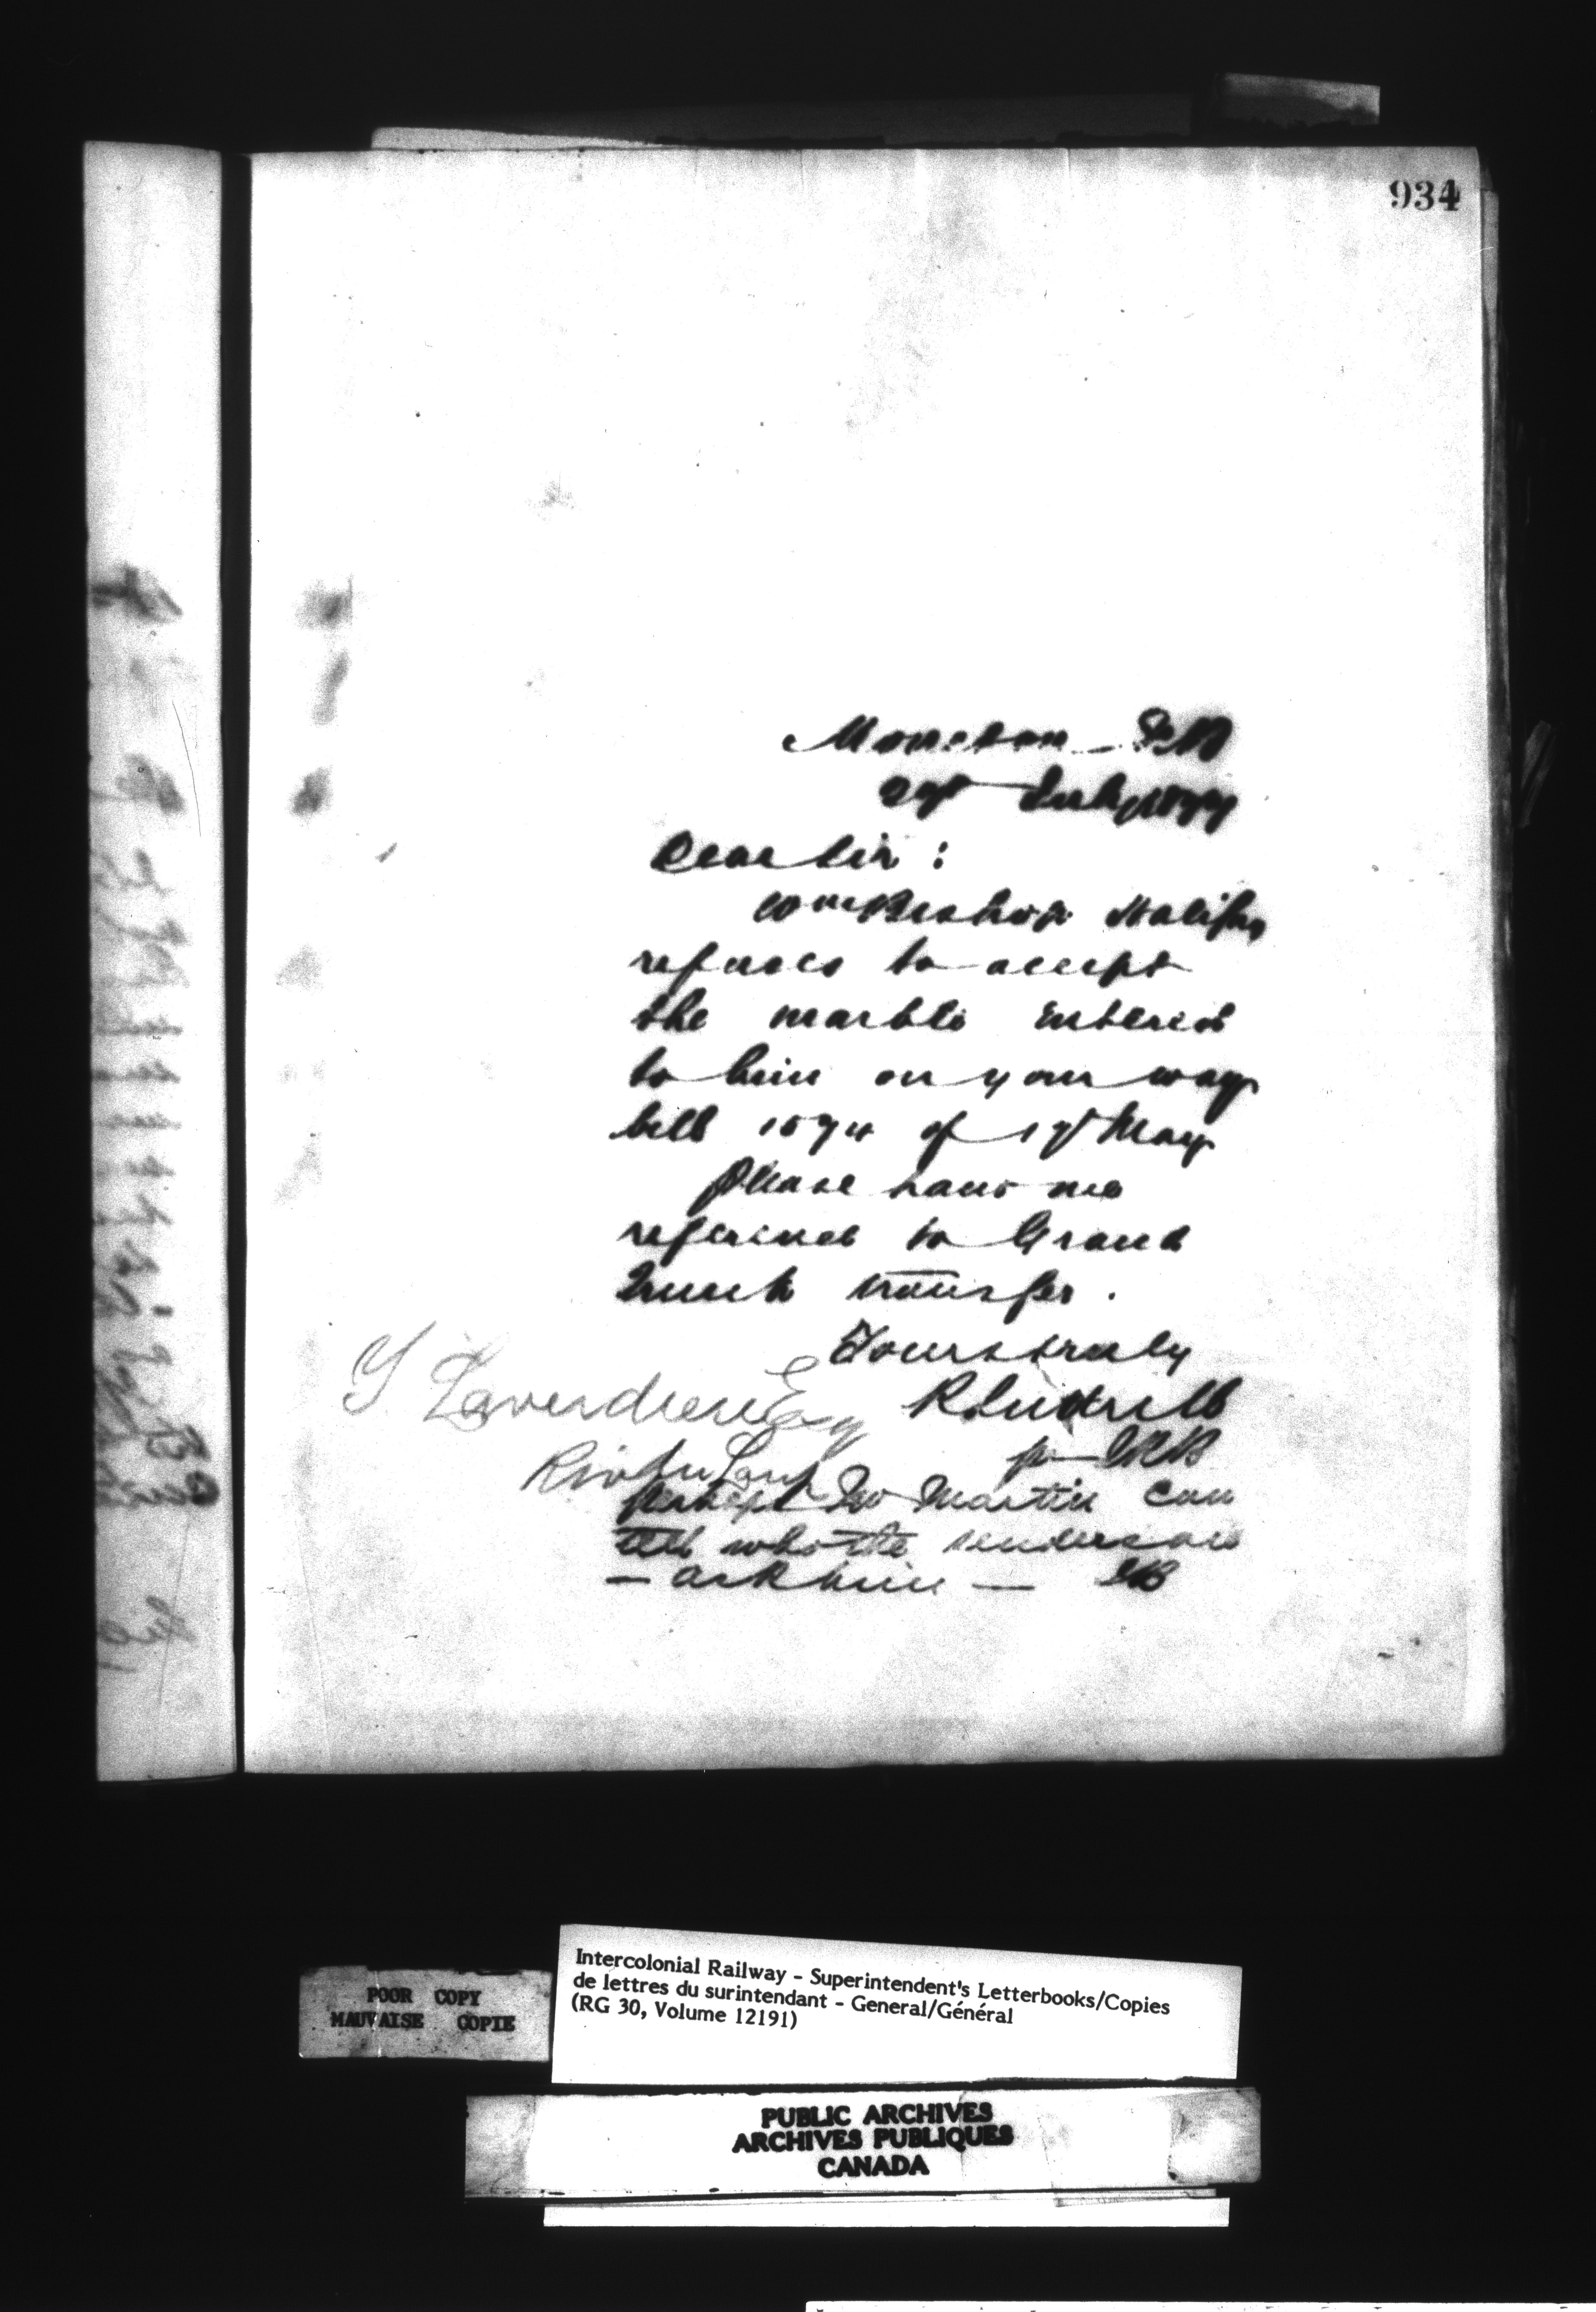 934
Moncton N.B
July 1879
Dear Sir :
Wm Bishop Halifax
refuses to accept
the marble entered
to him on your way
bill 1574 of 17th May
Please have me
referred to Grand
Trunk transfer .
Yours truly
R. Luttrell
G Laverdiere Esq
Riv du Loup
per
perhaps Mr Martin can
tell who the senders are
— ask him —
POOR COPY
MAUVAISE COPIE
Intercolonial Railway - Superintendent's Letterbooks/Copies
de lettres du surintendant - General/Général
(RG 30, Volume 12191)
PUBLIC ARCHIVES
ARCHIVES PUBLIQUES
CANADA